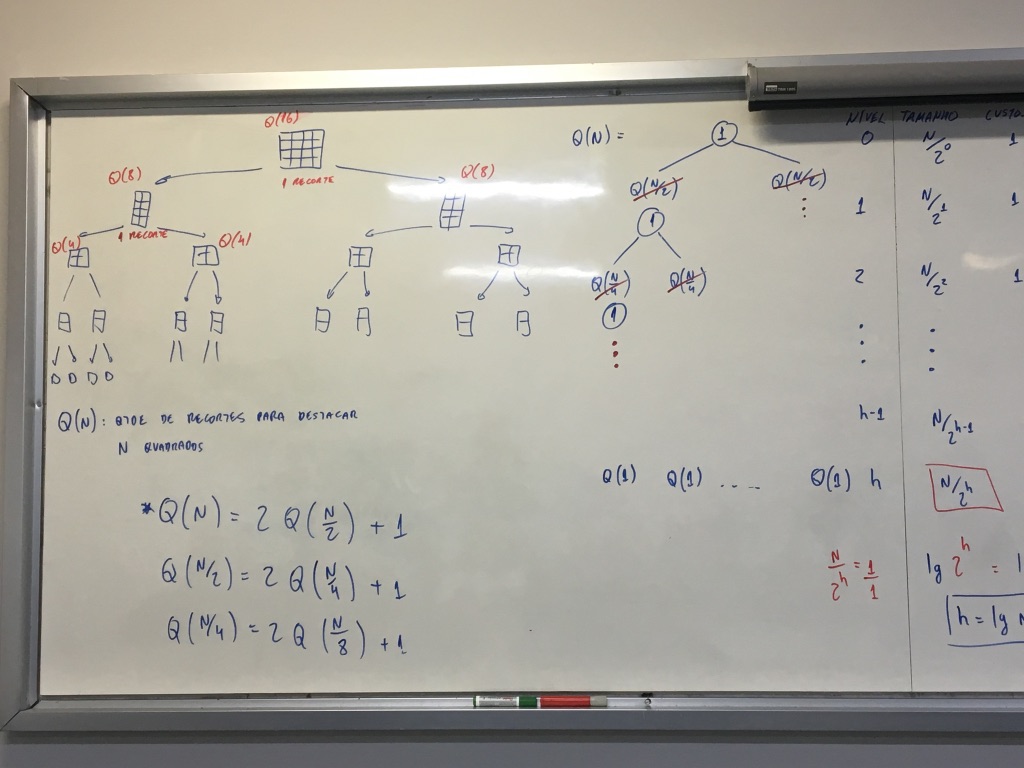 Q(16)
1 RECORTE
Q(8)
Q(8)
1 RECORTE
Q(4)
Q(4)
Q(N): QTDE DE RECORTES PARA DESTACAR
N QUADRADOS
*Q(N) = 2 Q(N/2) + 1
Q(N/2) = 2 Q(N/4) + 1
Q(N/4) = 2 Q(N/8) + 1
Q(N) = 1
Q(N/2) Q(N/2)
1
Q(N/4) Q(N/4)
1
Q(1) Q(1) .... Q(1)
NÍVEL TAMANHO CUSTO
0 N/2^0 1
1 N/2^1 1
2 N/2^2 1
h-1 N/2^h-1
h N/2^h
N/2^h = 1/1
lg 2^h = l
h = lg N